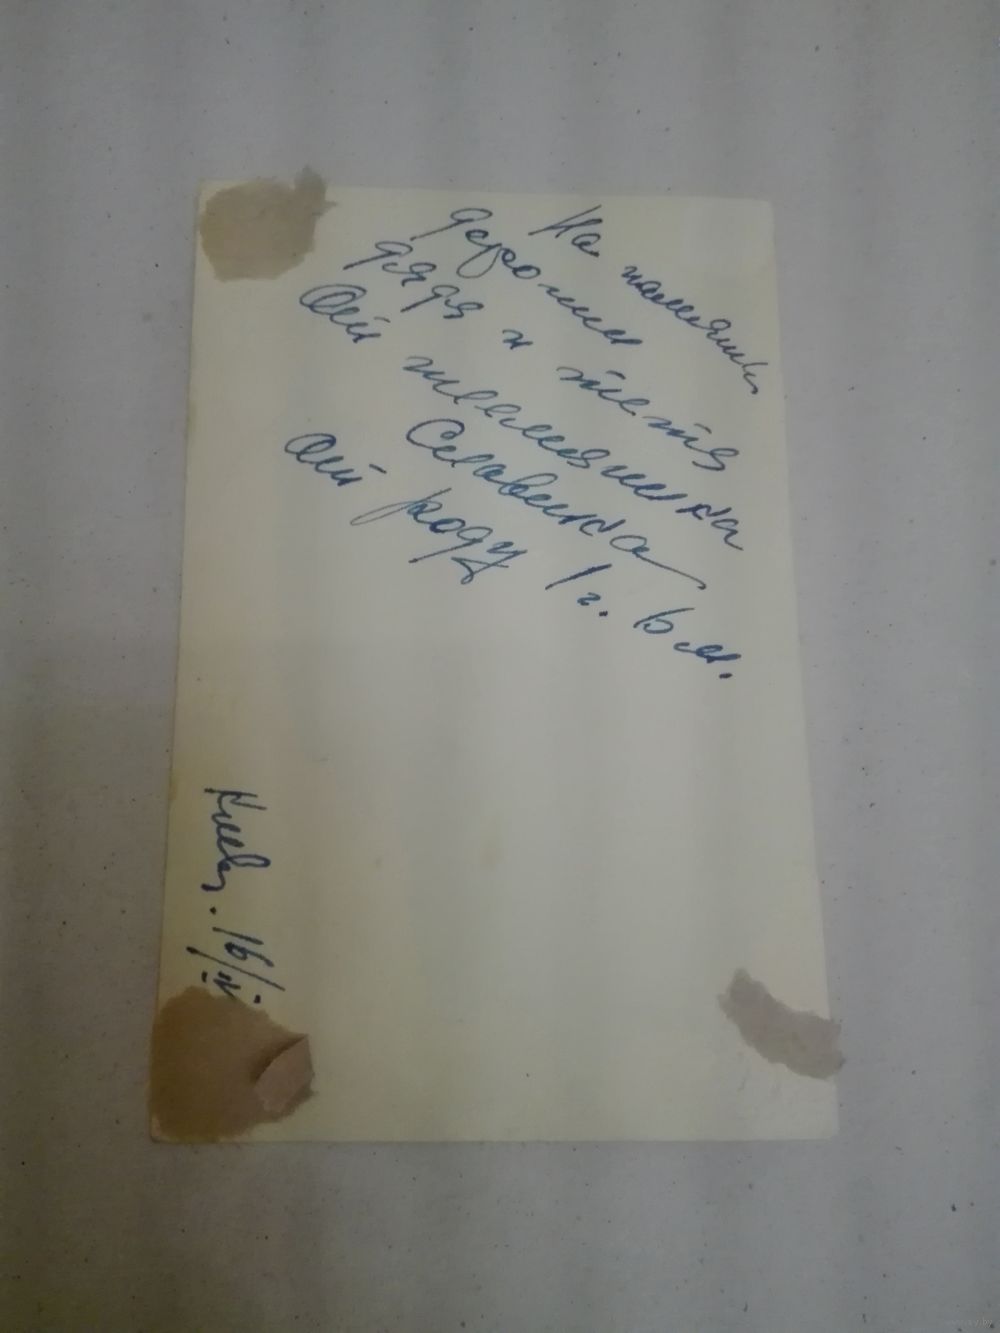 На память
дорогим
дяде и тете
От племянника
Славика
От роду 1 г. 6 м.
Киев. 16/